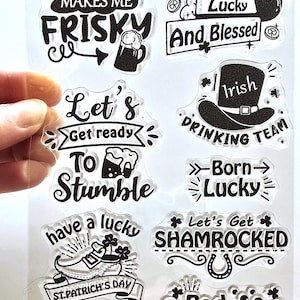 MAKES ME
FRISKY
Lucky
And Blessed
Let's
Get ready
TO
Stumble
Irish
DRINKING TEAM
Born
Lucky
have a lucky
ST.PATRICK'S DAY
Let's Get
SHAMROCKED